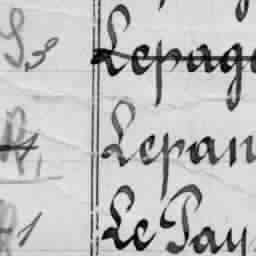 S3 Lepage
R1 Lepan
1 Le Pay